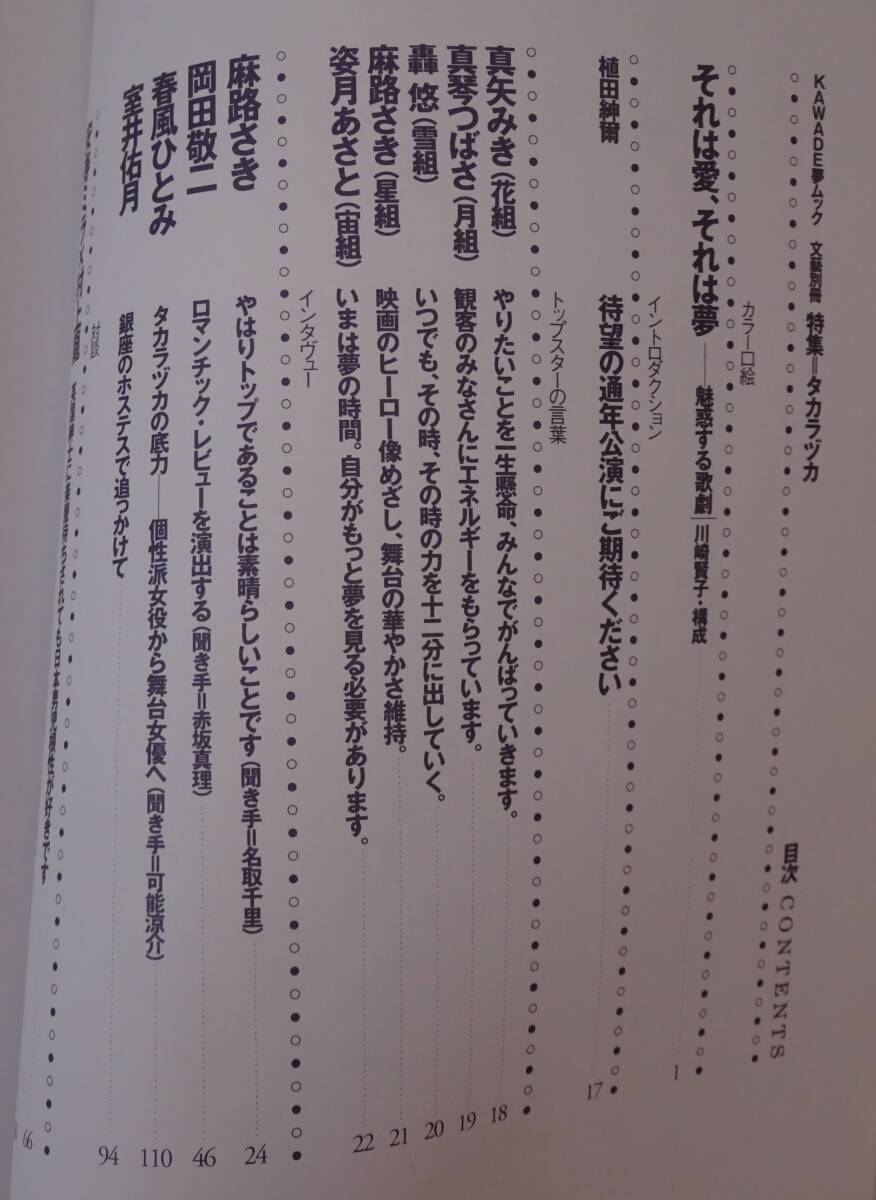 KAWADE夢ムック 文藝別冊 特集=タカラヅカ
目次 CONTENTS
カラー口絵
それは愛、それは夢――魅惑する歌劇|川崎賢子・構成 1
イントロダクション
植田紳爾 待望の通年公演にご期待ください 17
トップスターの言葉
真矢みき(花組) やりたいことを一生懸命、みんなでがんばっていきます。 18
真琴つばさ(月組) 観客のみなさんにエネルギーをもらっています。 19
轟 悠(雪組) いつでも、その時、その時の力を十二分に出していく。 20
麻路さき(星組) 映画のヒーロー像めざし、舞台の華やかさ維持。 21
姿月あさと(宙組) いまは夢の時間。自分がもっと夢を見る必要があります。 22
インタヴュー
麻路さき やはりトップであることは素晴らしいことです(聞き手=名取千里) 24
岡田敬二 ロマンチック・レビューを演出する(聞き手=赤坂真理) 46
春風ひとみ タカラヅカの底力――個性派女役から舞台女優へ(聞き手=可能涼介) 110
室井佑月 銀座のホステスで追っかけて 94
対談
されても日本男児根性が好きです 66